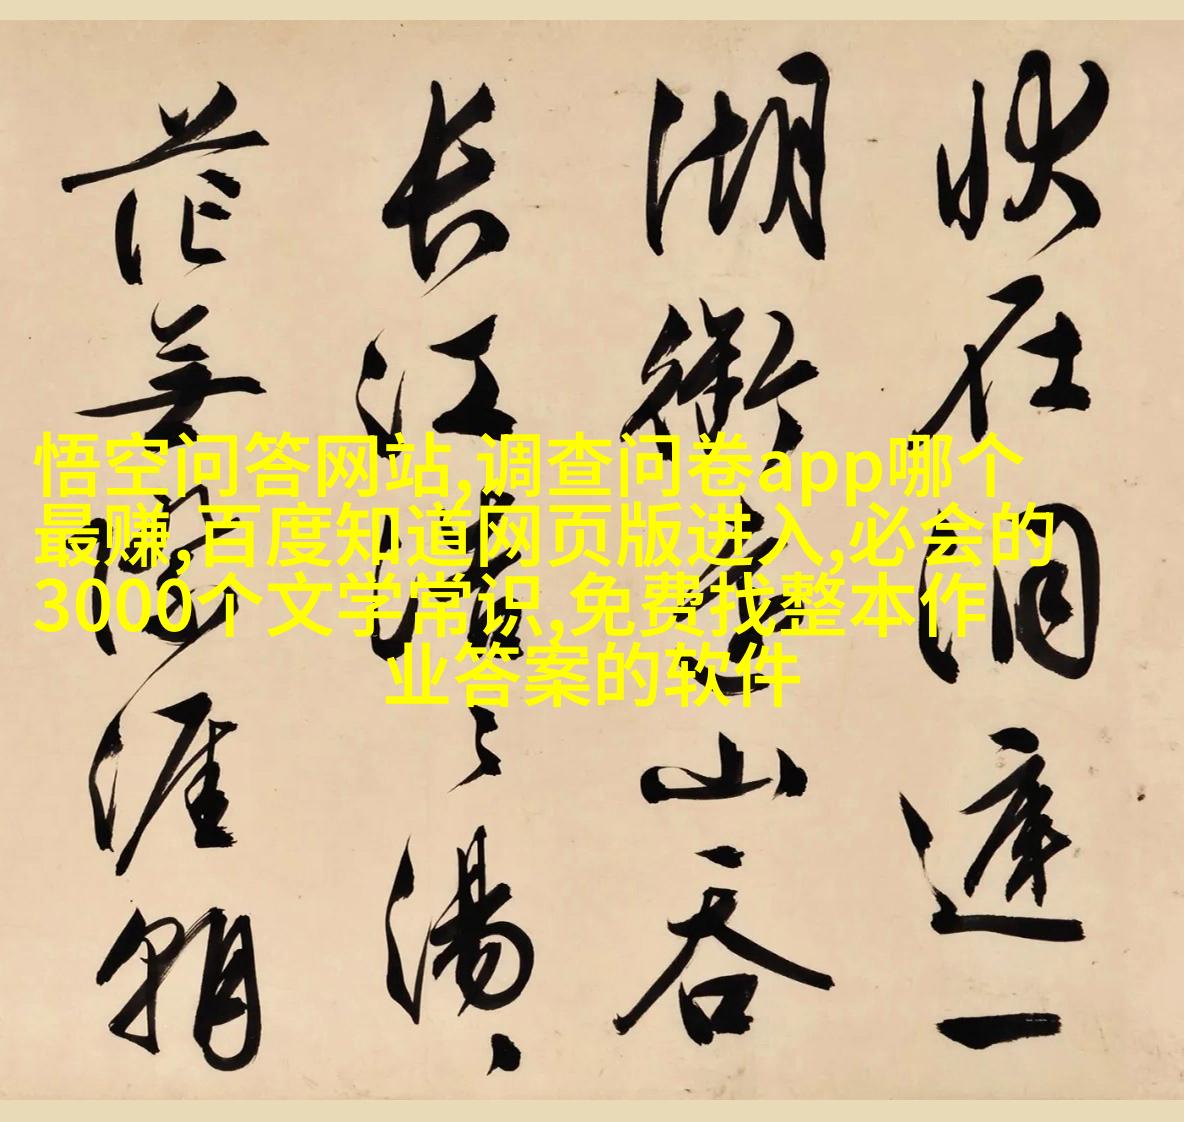 悟空问答网站,调查问卷app哪个
最赚,百度知道网页版进入,必会的
3000个文学常识,免费找整本作
业答案的软件
状在洞庭一
湖衔远山吞
长江浩〻汤〻
无际涯朝